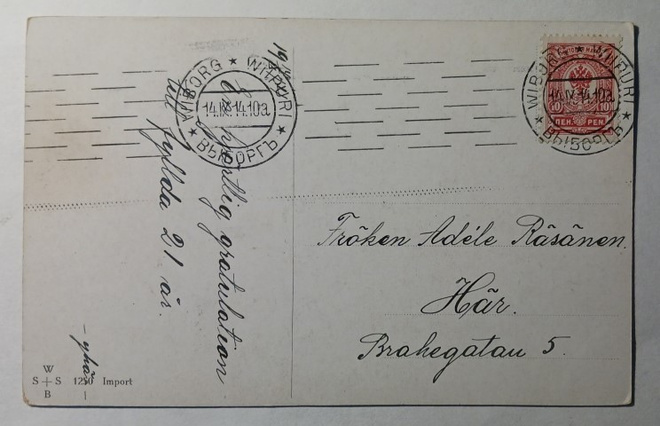 WIBORG ★ WIIPURI ★ ВЫБОРГЪ ★
14.IV.14.10a.
WIBORG ★ WIIPURI ★ ВЫБОРГЪ ★
14.IV.14.10a.
10 10
ПЕН. PEN.
gratulation
till fyllda 21 år.
Fröken Adéle Räsänen.
Här.
Brahegatan 5.
W
S + S 1250 Import
B